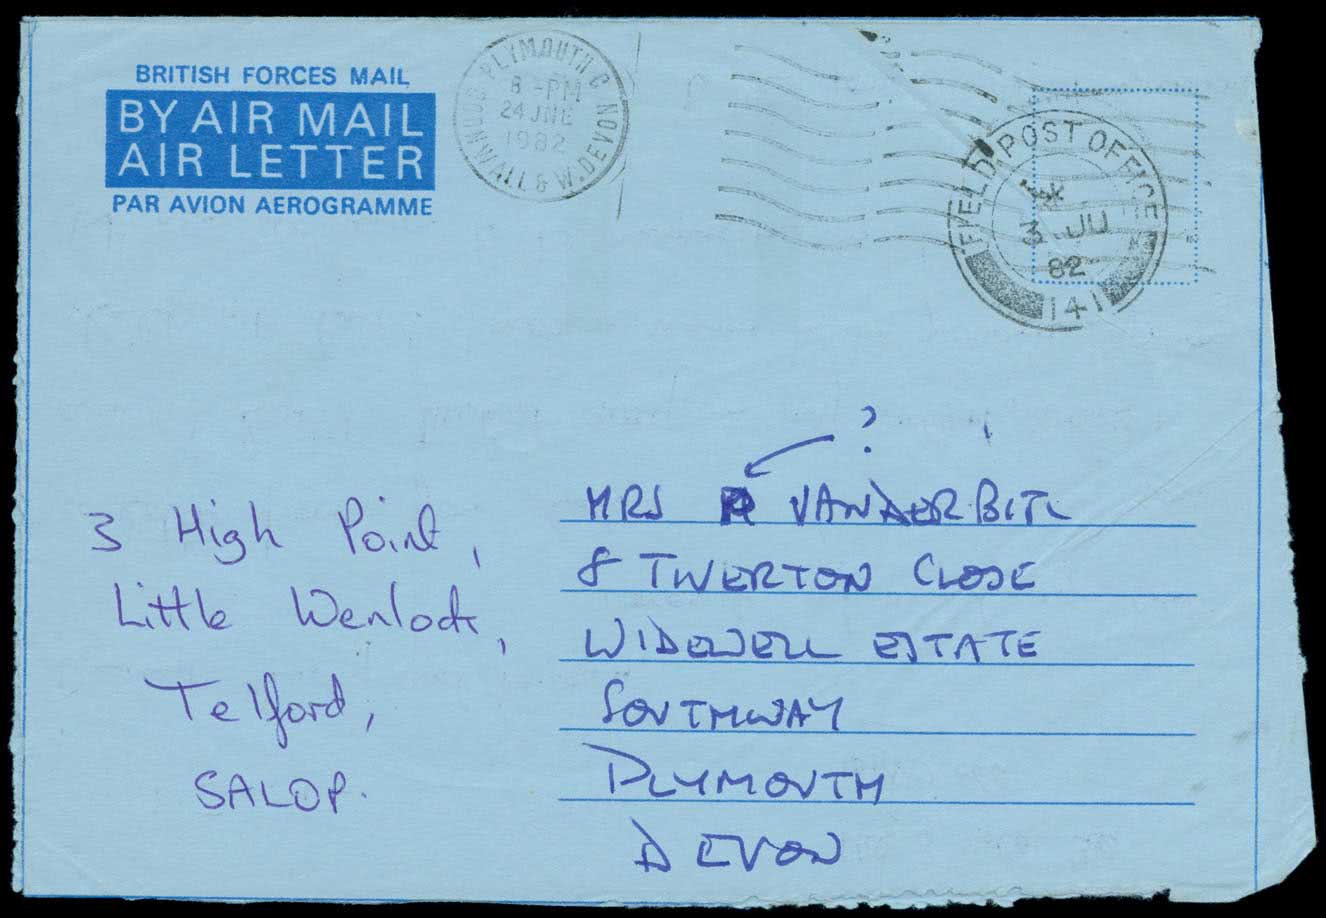 BRITISH FORCES MAIL
BY AIR MAIL
AIR LETTER
PAR AVION AEROGRAMME
PLYMOUTH C
8 - PM
24 JNE
1982
CORNWALL & W. DEVON
FIELD POST OFFICE
3 JU
82
141
?
MRS VANDERBITL
8 TWERTON CLOSE
WIDEWELL ESTATE
SOUTHWAY
PLYMOUTH
DEVON
3 High Point,
Little Wenlock,
Telford,
SALOP.